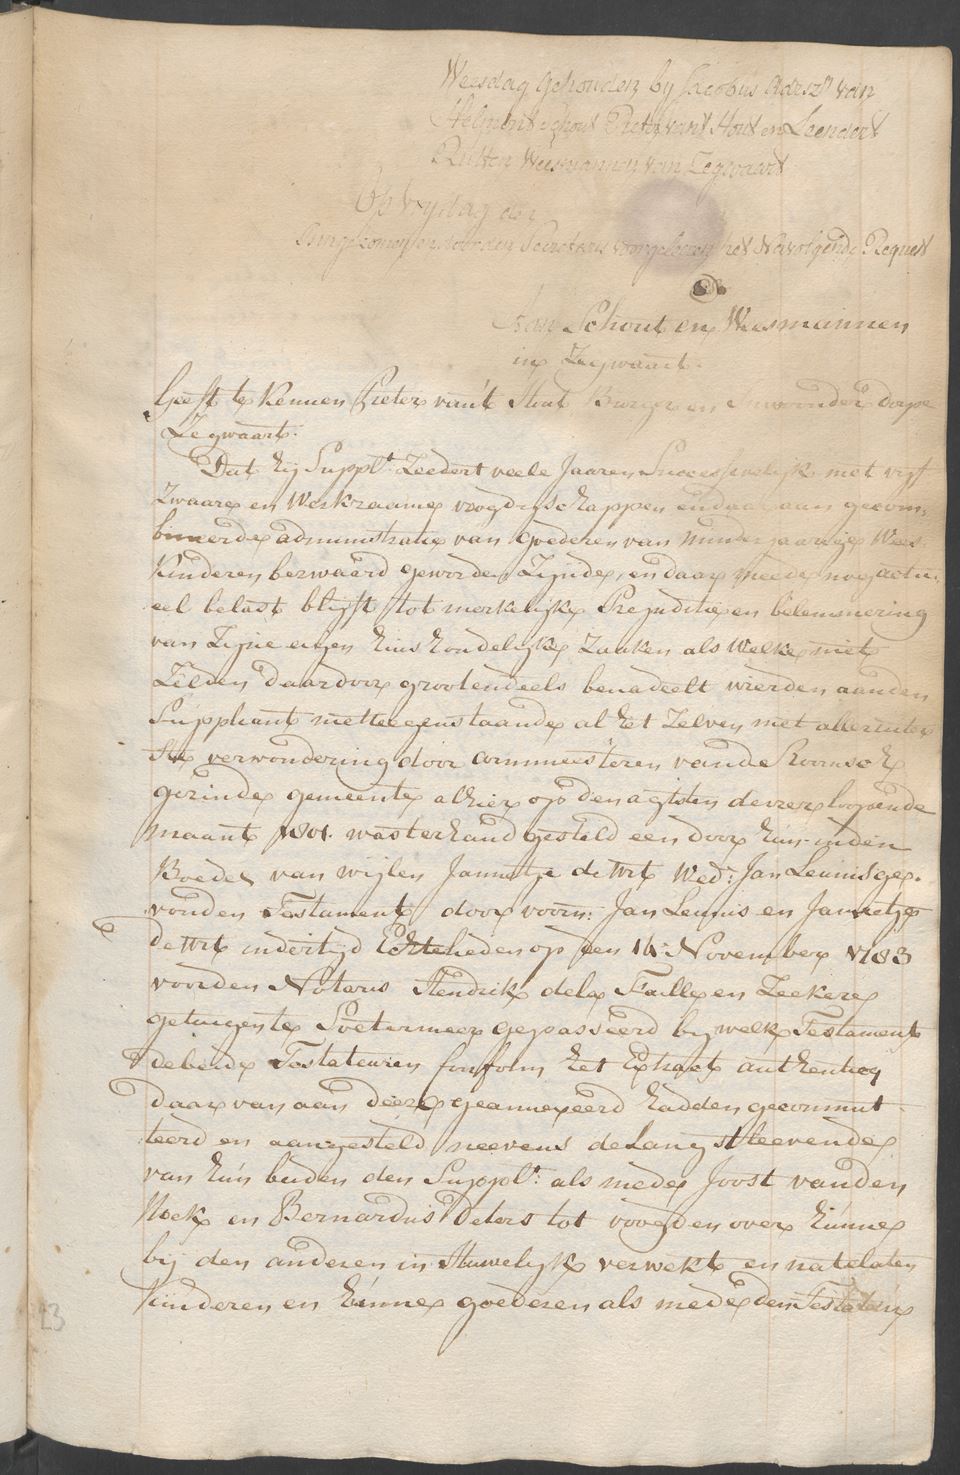 Weesdag gehouden by Jacobus Adrsz van
Helment Schout Pieter van't Hout en Leendert
Rutten Weesmannen van Zegwaart
Op vrydag den
Binnegekomen en door den Secretaris voorgeleezen het Navolgende Request
Aan Schout en Weesmannen
in Zegwaart.
Geeft te Kennen Pieter van't Hout Burger en Inwoonder dorpe
Zegwaart.
Dat hij Supplt. Zeedert veele Jaaren Successivelijk met vijf
Zwaare en Werkzaame voogdijschappen en daar aan gecom„
bineerde administratie van goederen van minderjaarige Wees
Kinderen bezwaard geworden Zijnde, en daar meede nog actu„
eel belast blijft tot merkelijke Prejuditie en belemmering
van Zijne eigen huishoudelijke Zaaken als Welke niet
Zelden daardoor grootendeels benadeelt wierden aanden
Suppliant niettegenstaande al het Zelven met alleruiter
ste verwondering door Armmeesteren vande Roomsch
gezinde gemeente alhier op den agtsten deezer loopende
maant 1801. was ter hand gesteld een door hun inden
Boedel van wijlen Jannetje de Wit Wed: Jan Leunis gev
vonden Testament door voorn: Jan Leunis en Jannetje
de Wit indertijd Echtelieden op den 14: November 1783
voorden Notaris Hendrik dela Faille en Zeekere
getuigen te Soetermeer gepasseerd by welk Testament
debeide Testateuren het Extract authenticq
daar van aan deeze geannexeerd hadden gecommit„
teerd en aangesteld neevens de Langstleevende
van hun beiden den Supplt: als mede Joost van den
Hoek en Bernardus Peters tot voogden over hunne
bij den anderen in Huwelijk verwekte en natelaten
Kinderen en hunne goederen als mede den Testateur
23